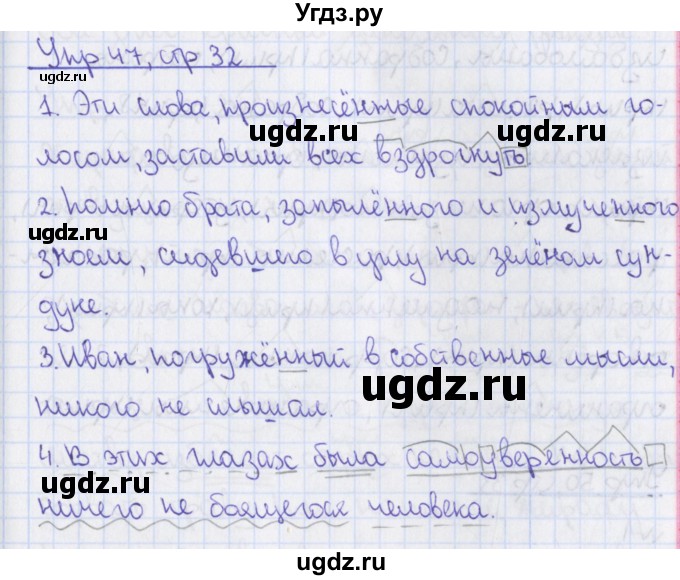 Угдз.ру
Упр 47, стр 32
ugdz.ru
1. Эти слова, произнесённые спокойным го-
ugdz.ru
ugdz.ru
лосом, заставили всех вздрогнуть.
2. Помню брата, запылённого и измученного
ugdz.ru
зноем, сидевшего в углу на зелёном сун-
дуке.
3. Иван, погружённый в собственные мысли,
ugdz.ru
никого не слышал.
4. В этих глазах была самоуверенность
ugdz.ru
ugdz.ru
ничего не боящегося человека.
ugdz.ru